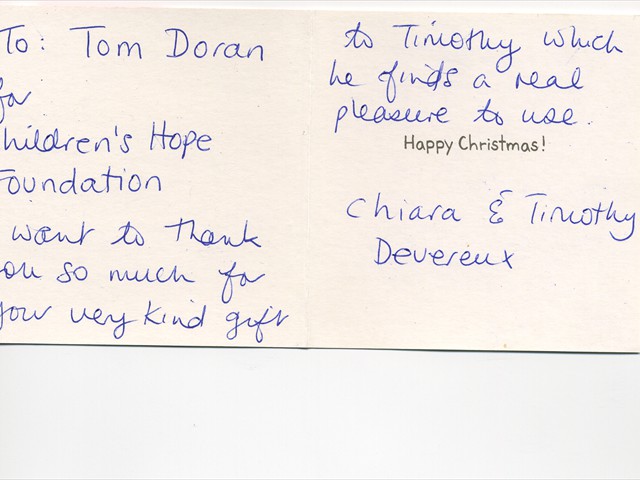 To: Tom Doran
for
hildren's Hope
Foundation
want to thank
ou so much for
your very kind gift
to Timothy which
he finds a real
pleasure to use.
Happy Christmas!
Chiara & Timothy
Devereux